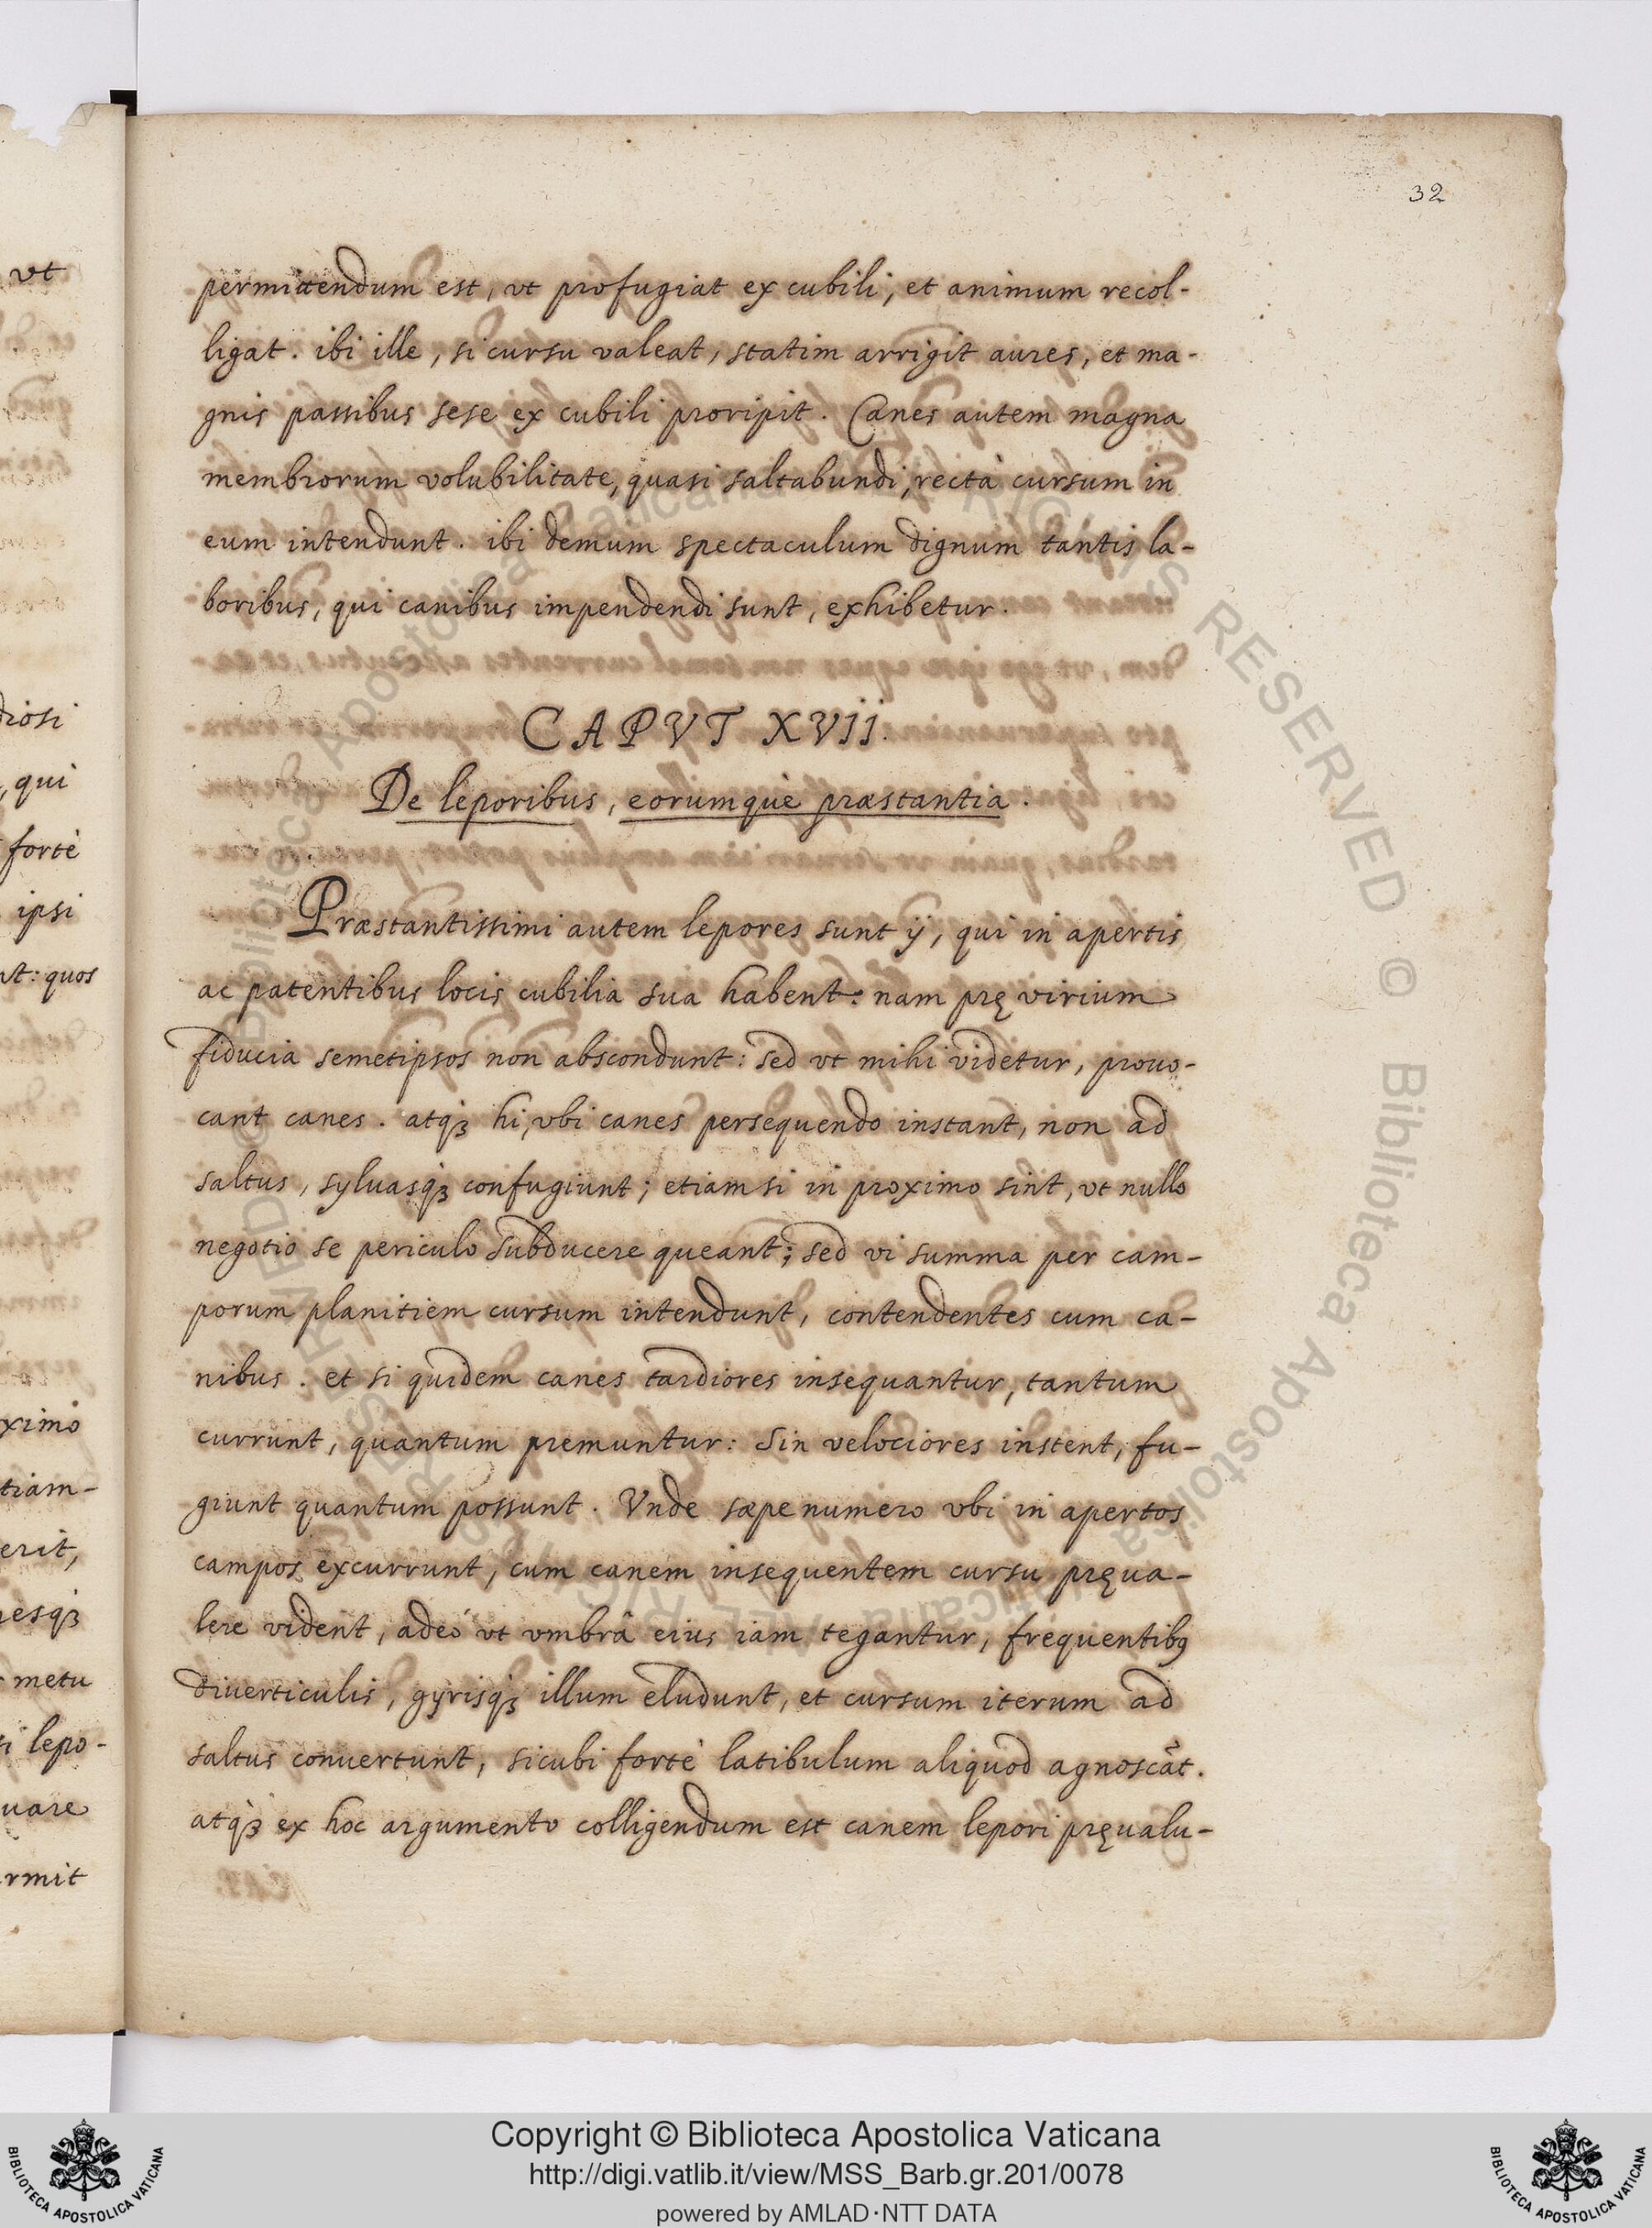 32
permittendum est, vt profugiat ex cubili, et animum recol-
ligat. ibi ille, si cursu valeat, statim arrigit aures, et ma-
gnis passibus sese ex cubili proripit. Canes autem magna
membrorum volubilitate, quasi saltabundi, rectà cursum in
eum intendunt. ibi demum spectaculum dignum tantis la-
boribus, qui canibus impendendi sunt, exhibetur.
CAPVT XVII.
De leporibus, eorumquè præstantia.
Præstantissimi autem lepores sunt ÿ, qui in apertis
ac patentibus locis cubilia sua habent: nam pręvirium
fiducia semetipsos non abscondunt: sed vt mihi videtur, prouo-
cant canes. atqꝫ hi, vbi canes persequendo instant, non ad
saltus, syluasqꝫ confugiunt; etiamsi in proximo sint, vt nullo
negotio se periculo subducere queant; sed vi summa per cam-
porum planitiem cursum intendunt, contendentes cum ca-
nibus. et si quidem canes tardiores insequantur, tantum
currunt, quantum premuntur: Sin velociores instent, fu-
giunt quantum possunt. Vnde sæpenumero vbi in apertos
campos excurrunt, cum canem insequentem cursu pręua-
lere vident, adeò vt vmbrâ eius iam tegantur, frequentibꝰ
diuerticulis, gyrisqꝫ illum eludunt, et cursum iterum ad
saltus conuertunt, sicubi fortè latibulum aliquod agnoscāt.
atqꝫ ex hoc argumento colligendum est canem lepori pręualu-
vt
diosi
, qui
fortè
ipsi
nt: quos
ximo
tiam-
erit,
resqꝫ
metu
si lepo-
uare
rmit
© Biblioteca Apostolica Vaticana ALL RIGHTS RESERVED © Biblioteca Apostolica Vaticana ALL RIGHTS RESERVED
Copyright © Biblioteca Apostolica Vaticana
http://digi.vatlib.it/view/MSS_Barb.gr.201/0078
powered by AMLAD·NTT DATA
BIBLIOTECA APOSTOLICA VATICANA
BIBLIOTECA APOSTOLICA VATICANA